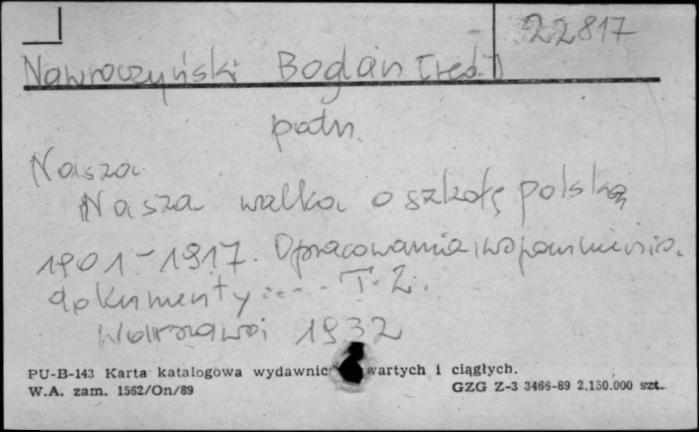 22817
Nawroczyński Bogdan [red.]
patrz
Nasza
Nasza walka o szkołę polską
1901-1917. Opracowania, wspomnienia,
dokumenty .... T. 2.
Warszawa 1932
PU-B-143 Karta katalogowa wydawnic wartych i ciągłych.
W.A. zam. 1562/On/89 GZG Z-3 3466-89 2.150.000 szt.